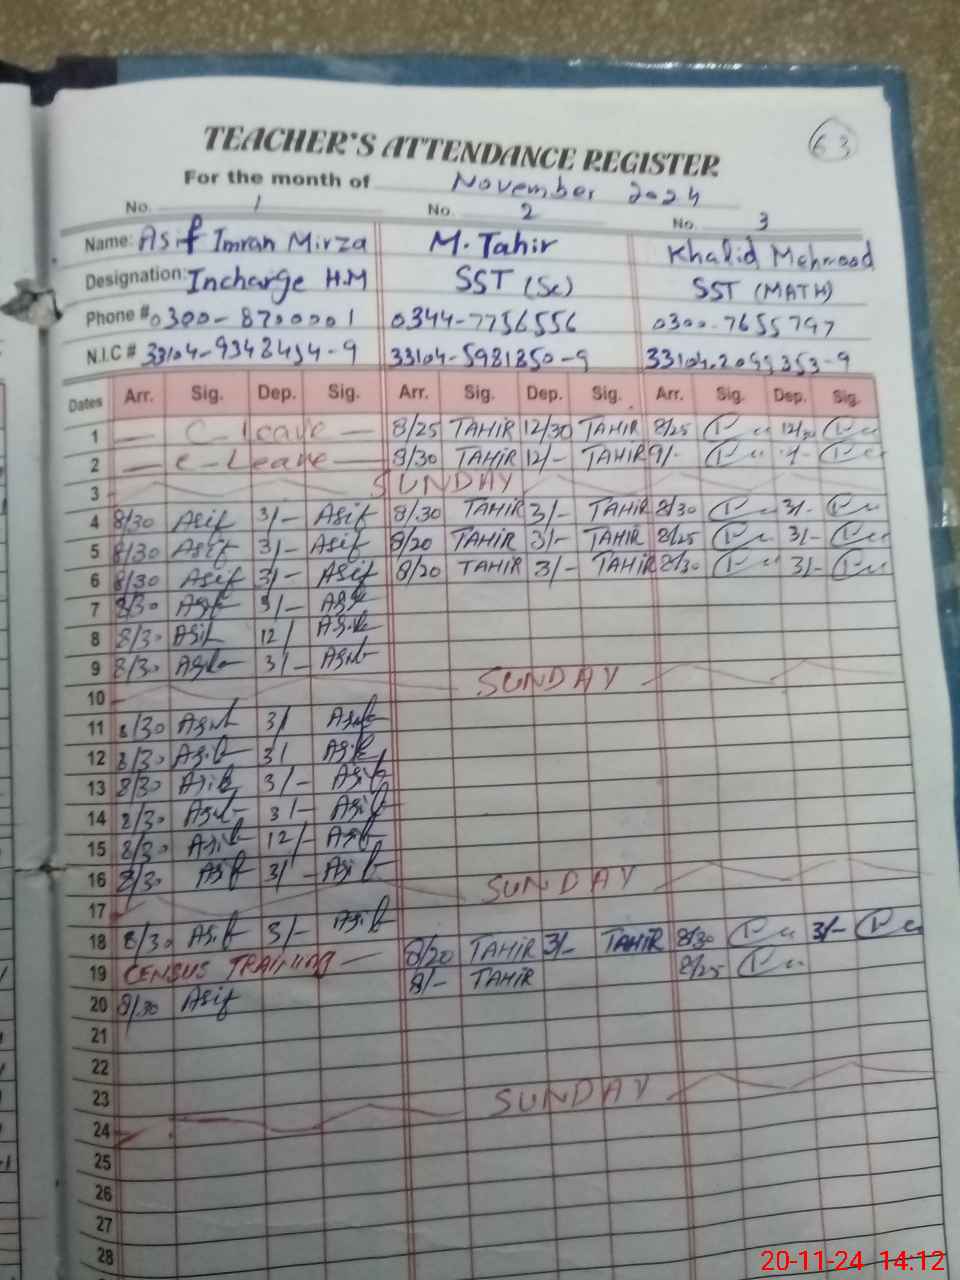 63
TEACHER'S ATTENDANCE REGISTER
For the month of November 2024
No. 1 No. 2 No. 3
Name: Asif Imran Mirza M. Tahir Khalid Mehmood
Designation: Incharge H.M SST (Sc) SST (MATH)
Phone # 0300-8700001 0344-7756556 0300-7655797
N.I.C # 33104-9348454-9 33104-5981850-9 33104-2099353-9
Dates Arr. Sig. Dep. Sig. Arr. Sig. Dep. Sig. Arr. Sig. Dep. Sig.
1 — C-Leave — 8/25 TAHIR 12/30 TAHIR 8/25 12/30
2 — C-Leave — 8/30 TAHIR 12/- TAHIR 9/-
3 SUNDAY
4 8/30 Asif 3/- Asif 8/30 TAHIR 3/- TAHIR 8/30 3/-
5 8/30 Asif 3/- Asif 8/20 TAHIR 3/- TAHIR 8/25 3/-
6 8/30 Asif 3/- Asif 8/20 TAHIR 3/- TAHIR 8/30 3/-
7 8/30 Asif 3/- Asif
8 8/30 Asif 12/ Asif
9 8/30 Asif 3/- Asif
10 SUNDAY
11 8/30 Asif 3/ Asif
12 8/30 Asif 3/ Asif
13 8/30 Asif 3/- Asif
14 8/30 Asif 3/- Asif
15 8/30 Asif 12/- Asif
16 8/30 Asif 3/- Asif
17 SUNDAY
18 8/30 Asif 3/- Asif
19 CENSUS TRAINING — 8/20 TAHIR 3/- TAHIR 8/30 3/-
20 8/30 Asif 8/- TAHIR 8/25
21
22
23
24 SUNDAY
25
26
27
28
20-11-24 14:12